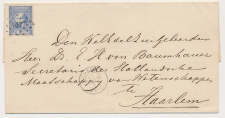 Den WelEdelZeerGeleerden
Heer Dr. E. H. von Baumhauer
Secretaris der Hollandsche
Maatschappij van Wetenschappen
te
Haarlem